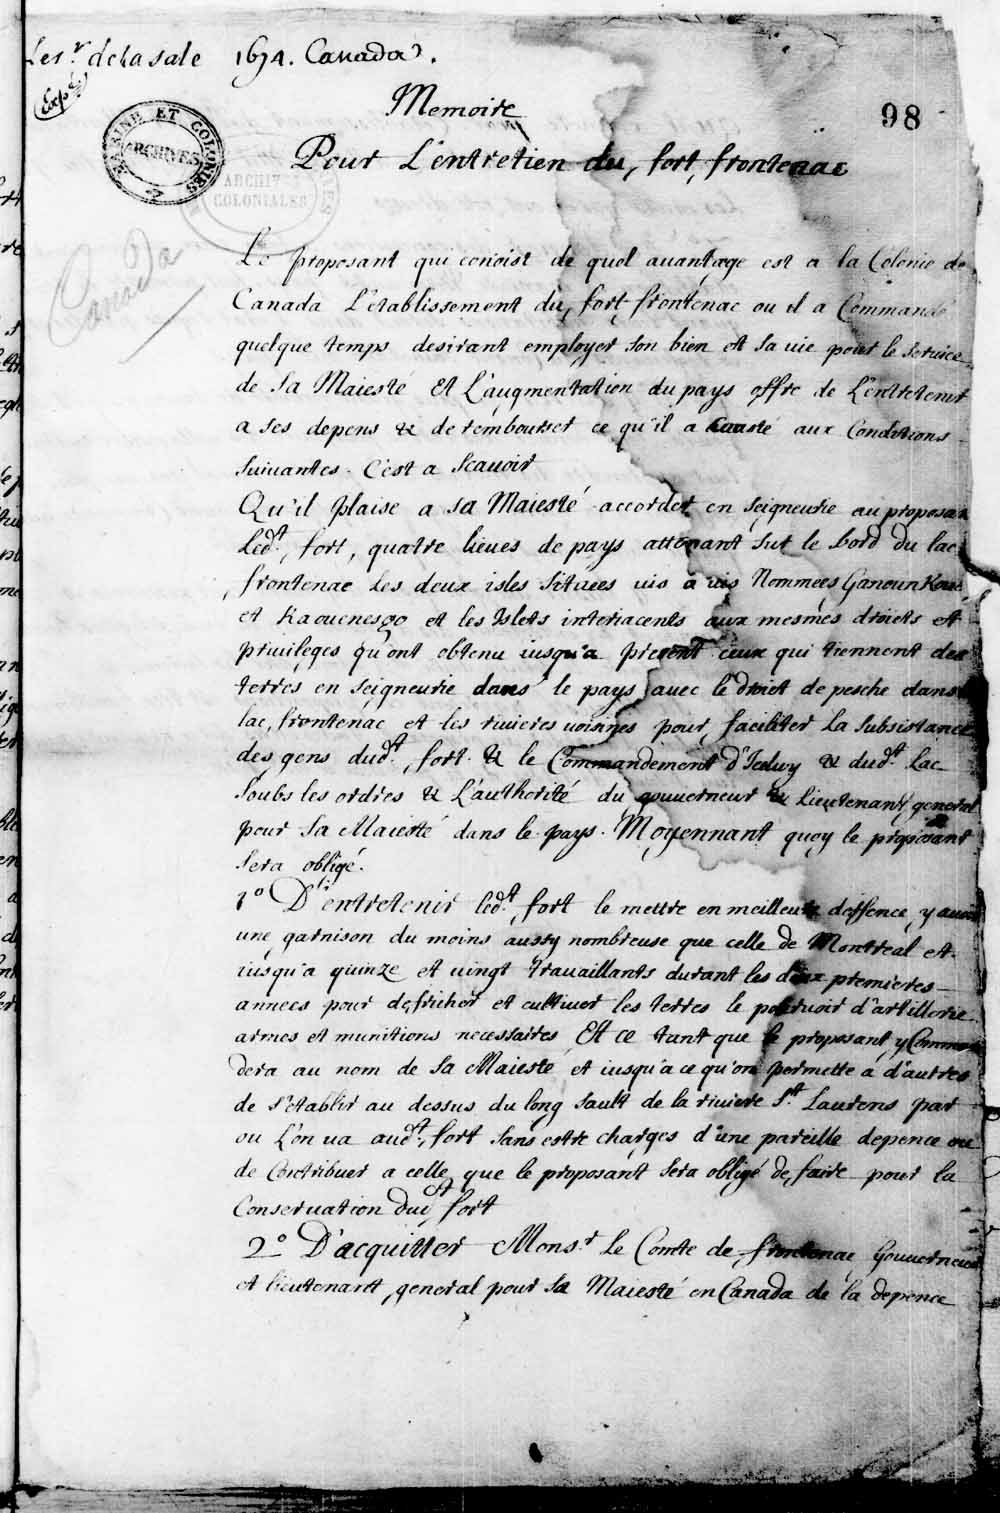 Le sr. de la sale 1674. Canada.
Expé.
98
Memoire
Pour L'entretien du fort frontenac
MARINE ET COLONIES
ARCHIVES
ARCHIVES
COLONIALES
Canada
Le proposant qui conoist de quel auantage est a la Colonie de
Canada L'etablissement du fort frontenac ou il a Commandé
quelque temps desirant employer son bien et sa vie pour le seruice
de Sa Maiesté Et L'augmentation du pays offre de L'entretenir
a ses depens & de rembourser ce qu'il a couste aux Conditions
suiuantes. C'est a Scauoir
Qu'il plaise a sa Maiesté accorder en seigneurie au proposant
Ledt. fort, quatre lieues de pays attenant sur le bord du lac
frontenac les deux isles situees uis a uis Nommees Ganounkouesnot
et Kaouenesgo et les Islets interiacents aux mesmes droicts et
priuileges qu'ont obtenu iusqu'a present ceux qui tiennent des
terres en seigneurie dans le pays auec le droict de pesche dans
lac frontenac et les riuieres uoisines pour faciliter la subsistance
des gens dudt. fort. & le Commandement d'Iceluy & dudt. Lac
Soubs les ordres & L'authorité du gouuerneur & lieutenant general
pour Sa Maiesté dans le pays. Moyennant quoy le proposant
Sera obligé.
1o D'entretenir ledt. fort le mettre en meilleure deffence, y auoir
une garnison du moins aussy nombreuse que celle de Montreal et
iusqu'a quinze et uingt trauaillants durant les deux premieres
annees pour defricher et cultiuer les terres le pouruoir d'artillerie
armes et munitions necessaires Et ce tant que le proposant y Comman
dera au nom de Sa Maiesté et iusqu'a ce qu'on permette a d'autres
de s'etablir au dessus du long sault de la riuiere St. Laurens par
ou L'on ua audt. fort sans estre charges d'une pareille depence ou
de Contribuer a celle que le proposant Sera obligé de faire pour la
Conseruation dudt fort
2o D'acquitter Monsr. Le Comte de frontenac Gouuerneur
et lieutenant general pour Sa Maiesté en Canada de la depence